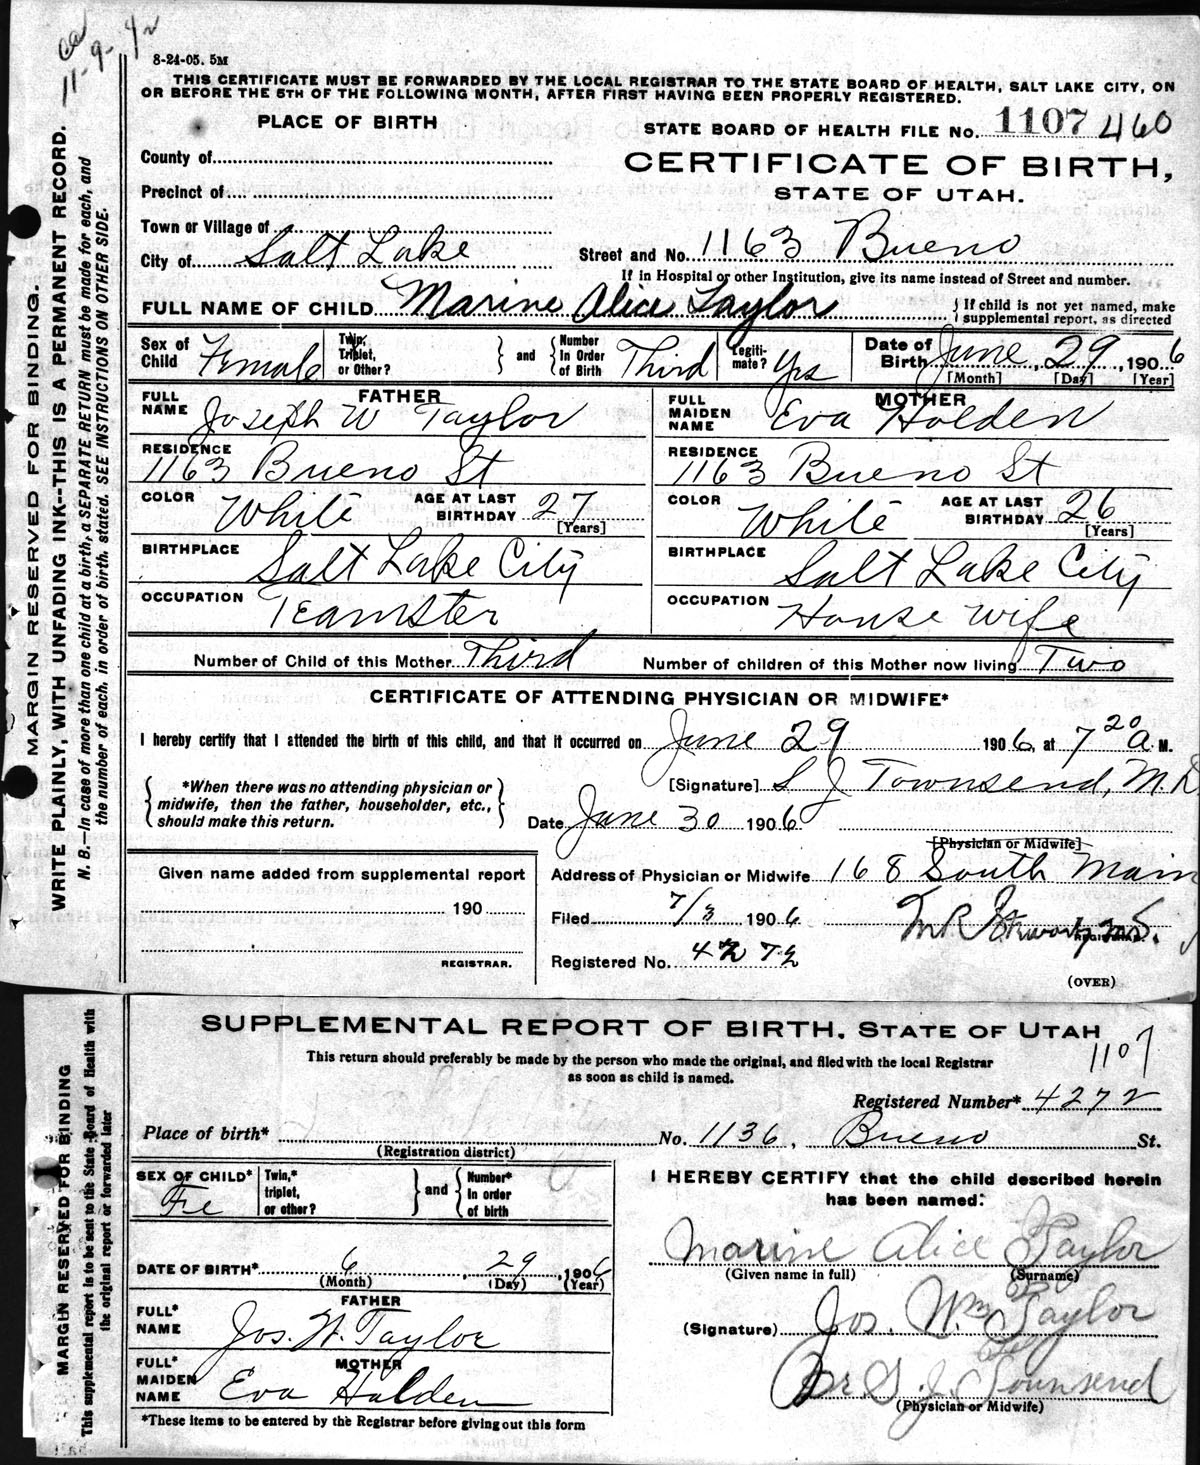 ca
11-9-42
8-24-05. 5M
THIS CERTIFICATE MUST BE FORWARDED BY THE LOCAL REGISTRAR TO THE STATE BOARD OF HEALTH, SALT LAKE CITY, ON
OR BEFORE THE 5TH OF THE FOLLOWING MONTH, AFTER FIRST HAVING BEEN PROPERLY REGISTERED.
PLACE OF BIRTH
STATE BOARD OF HEALTH FILE No. 1107 460
County of
CERTIFICATE OF BIRTH,
Precinct of
STATE OF UTAH.
Town or Village of
City of Salt Lake
Street and No. 1163 Bueno
If in Hospital or other Institution, give its name instead of Street and number.
FULL NAME OF CHILD Marine Alice Taylor { If child is not yet named, make supplemental report, as directed
Sex of Child Female Twin, Triplet, or Other? } and { Number In Order of Birth Third Legitimate? Yes Date of Birth June 29, 1906
[Month] [Day] [Year]
FATHER
FULL NAME Joseph W Taylor
RESIDENCE 1163 Bueno St
COLOR White AGE AT LAST BIRTHDAY 27 [Years]
BIRTHPLACE Salt Lake City
OCCUPATION Teamster
MOTHER
FULL MAIDEN NAME Eva Holden
RESIDENCE 1163 Bueno St
COLOR White AGE AT LAST BIRTHDAY 26 [Years]
BIRTHPLACE Salt Lake City
OCCUPATION House wife
Number of Child of this Mother Third Number of children of this Mother now living Two
CERTIFICATE OF ATTENDING PHYSICIAN OR MIDWIFE*
I hereby certify that I attended the birth of this child, and that it occurred on June 29 1906, at 7 20 A. M.
{ *When there was no attending physician or
midwife, then the father, householder, etc.,
should make this return. }
[Signature] S J Townsend, M.D
Date June 30 1906
[Physician or Midwife]
Given name added from supplemental report
190
REGISTRAR.
Address of Physician or Midwife 168 South Main
Filed 7/3 1906
REGISTRAR.
Registered No. 4272
(OVER)
MARGIN RESERVED FOR BINDING.
WRITE PLAINLY, WITH UNFADING INK--THIS IS A PERMANENT RECORD.
N. B.—In case of more than one child at a birth, a SEPARATE RETURN must be made for each, and
the number of each, in order of birth, stated. SEE INSTRUCTIONS ON OTHER SIDE.
SUPPLEMENTAL REPORT OF BIRTH, STATE OF UTAH
1107
This return should preferably be made by the person who made the original, and filed with the local Registrar
as soon as child is named.
Registered Number* 4272
Place of birth* No. 1136, Bueno St.
(Registration district)
SEX OF CHILD* Fe Twin,* triplet, or other? } and { Number* In order of birth
DATE OF BIRTH* 6 , 29 , 1906
(Month) (Day) (Year)
FATHER
FULL* NAME Jos. W. Taylor
MOTHER
FULL* MAIDEN NAME Eva Holden
*These items to be entered by the Registrar before giving out this form
I HEREBY CERTIFY that the child described herein
has been named:
Marine Alice Taylor
(Given name in full) (Surname)
(Signature) Jos. Wm Taylor
Dr S. J. Townsend
(Physician or Midwife)
MARGIN RESERVED FOR BINDING
This supplemental report is to be sent to the State Board of Health with
the original report or forwarded later